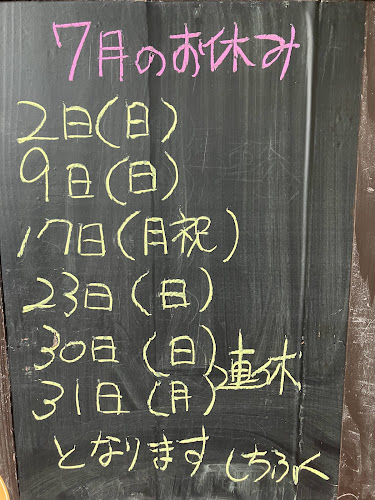 7月のお休み
2日(日)
9日(日)
17日(月祝)
23日(日)
30日(日)
31日(月)
連休
となります しちふく